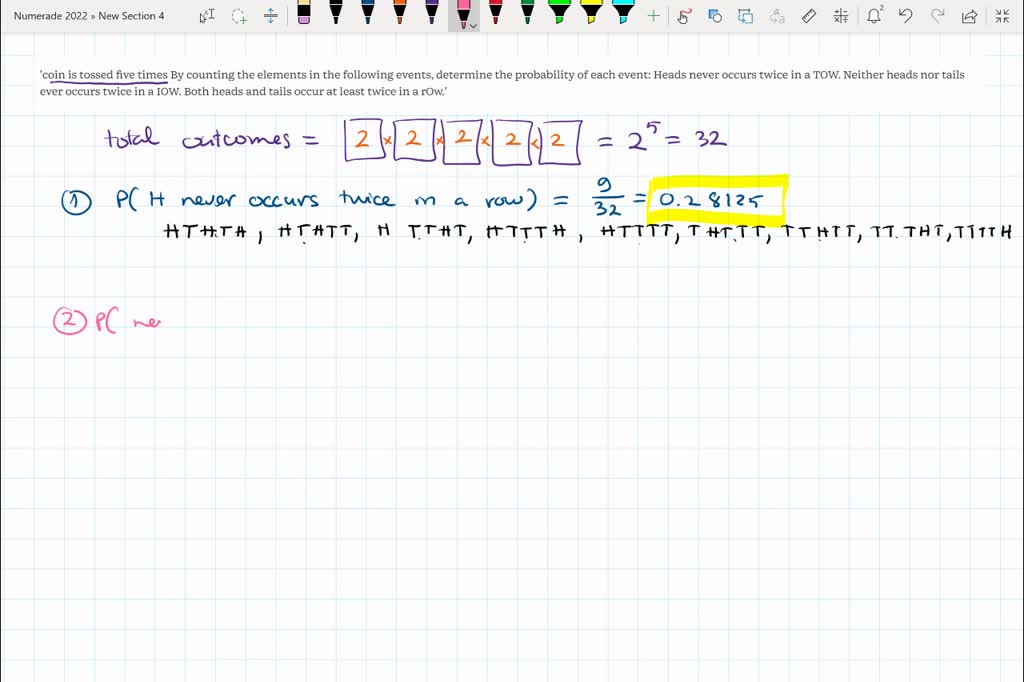 Numerade 2022 » New Section 4
2
'coin is tossed five times By counting the elements in the following events, determine the probability of each event: Heads never occurs twice in a TOW. Neither heads nor tails
ever occurs twice in a IOW. Both heads and tails occur at least twice in a rOw.'
total outcomes = 2 × 2 × 2 × 2 × 2 = 2^5 = 32
① P( H never occurs twice in a row) = 9/32 = 0.28125
HTHTH, HTHTT, H TTHT, HTTTH, HTTTT, THTTT, TTHTT, TTTHT, TTTTH
② P( ne